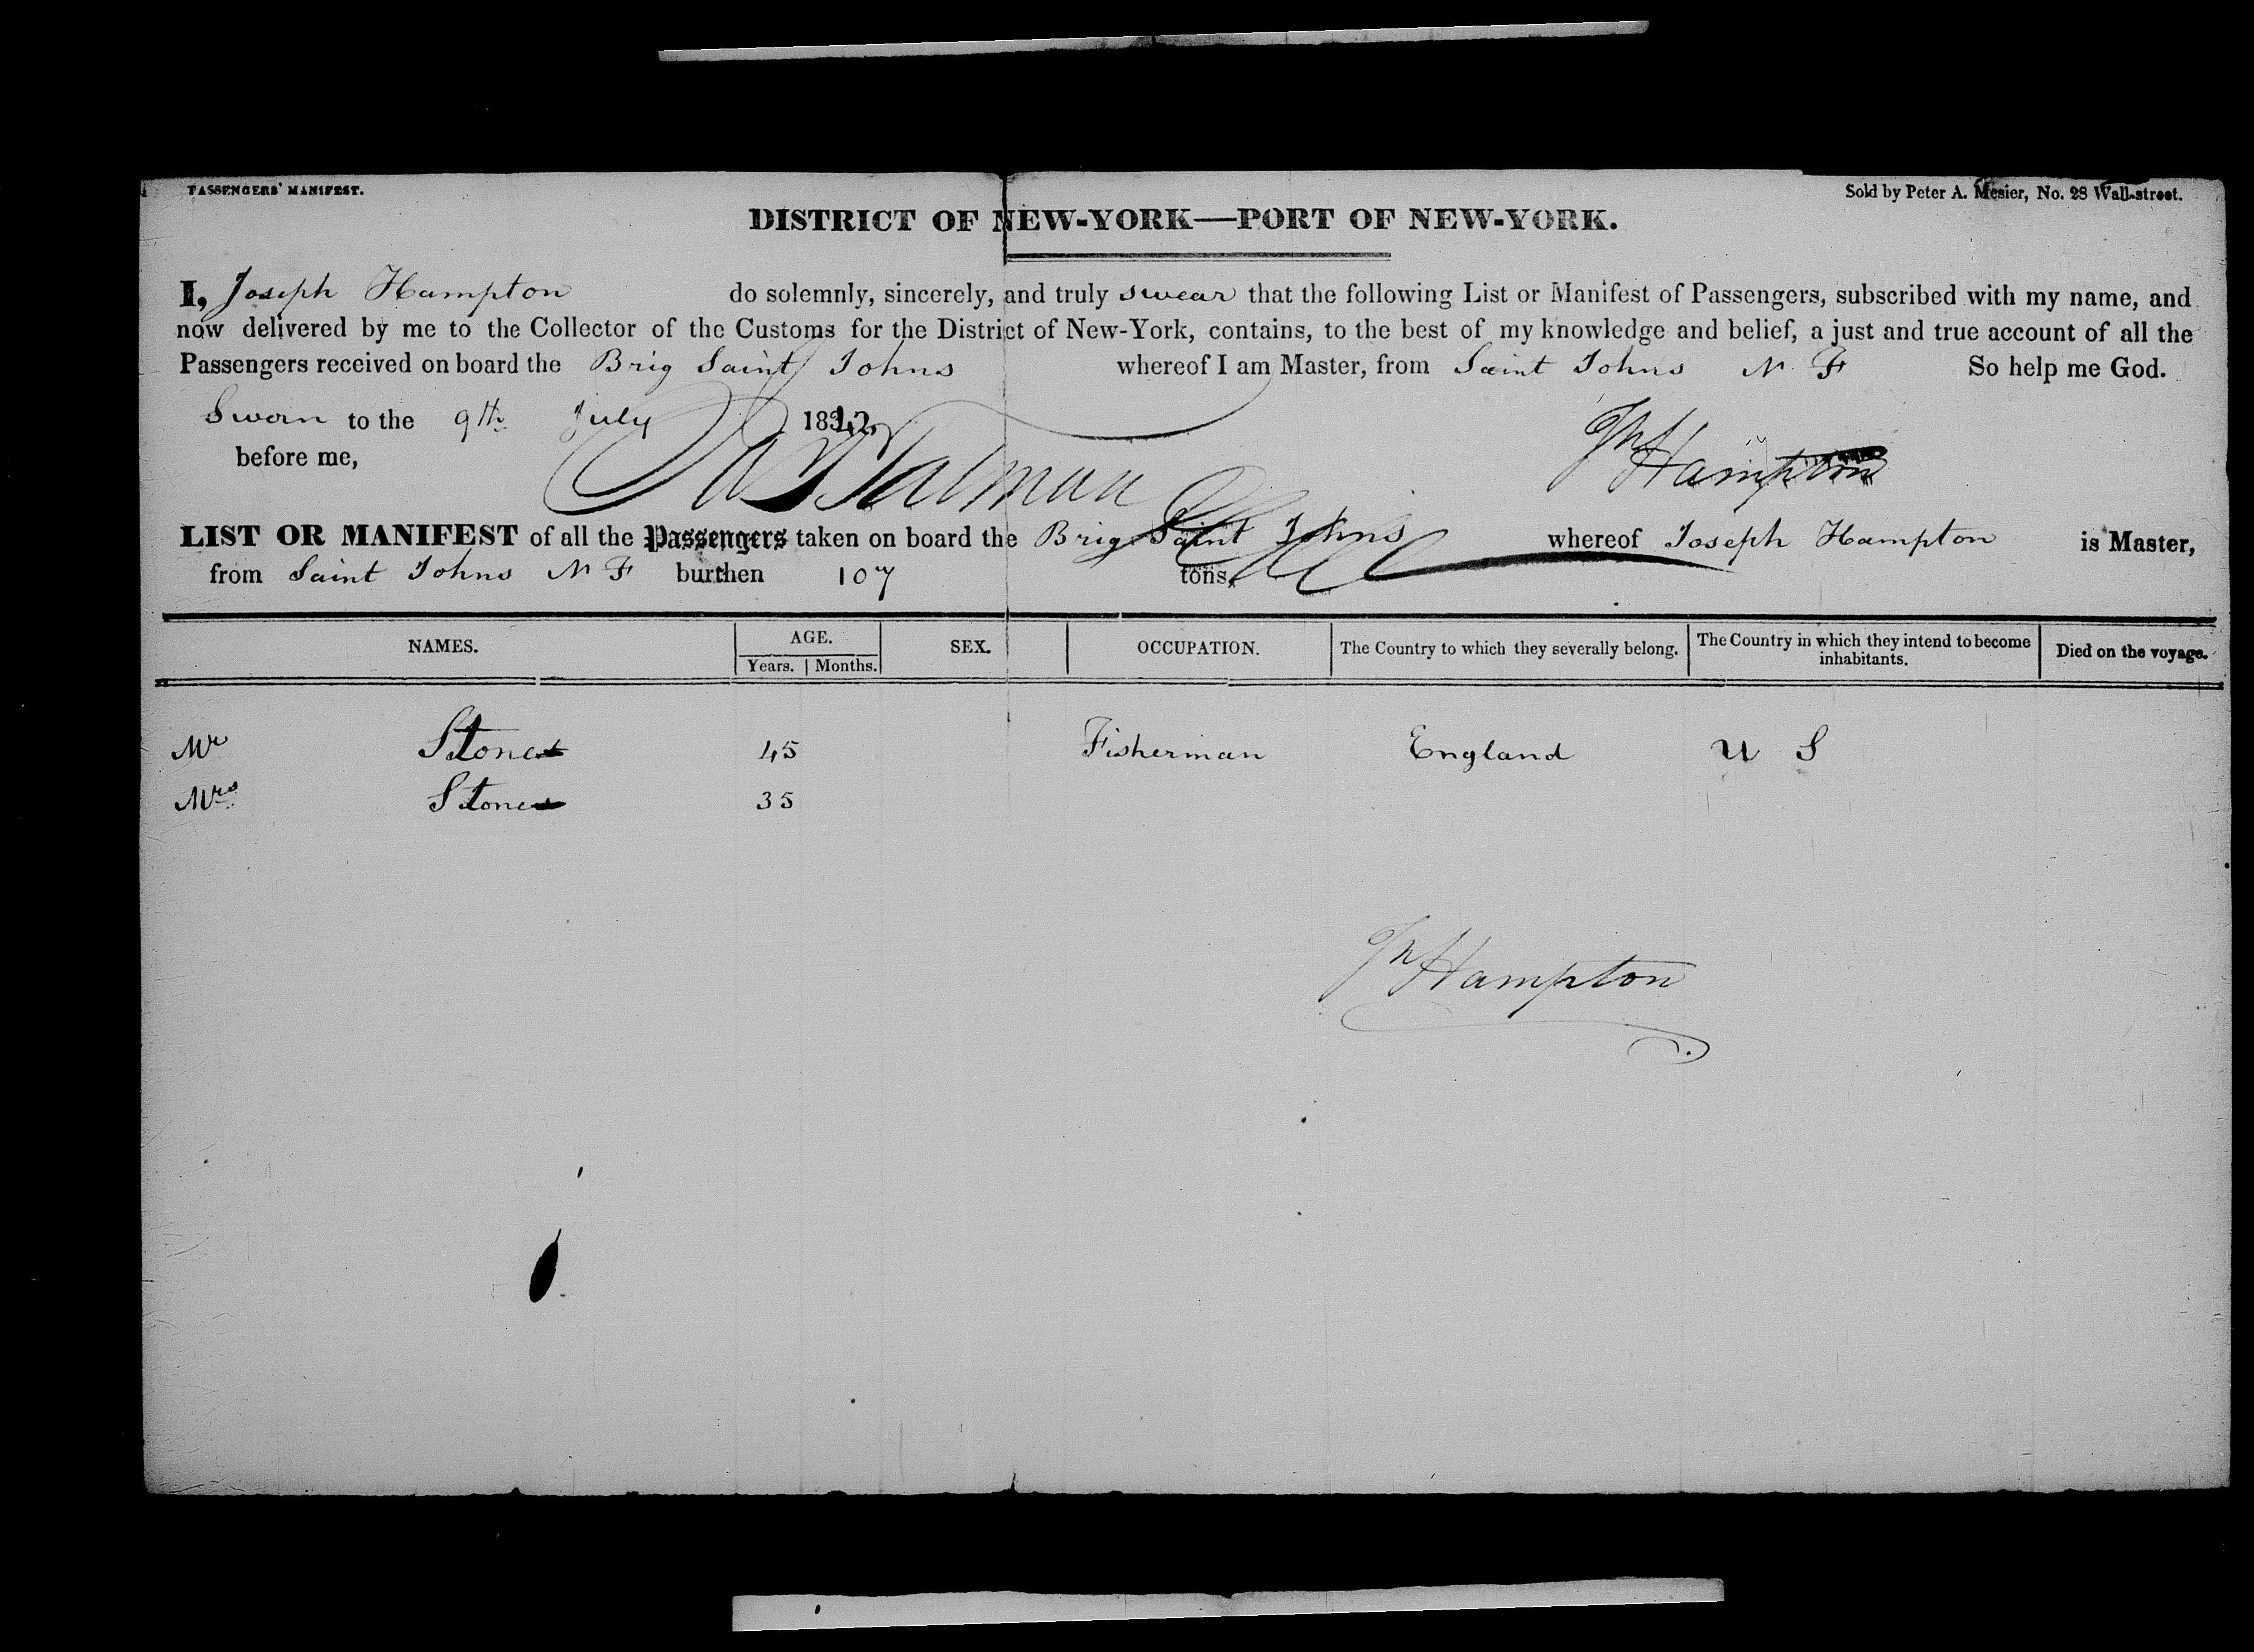 PASSENGERS' MANIFEST.
Sold by Peter A. Mesier, No. 28 Wall-street.
DISTRICT OF NEW-YORK—PORT OF NEW-YORK.
I, Joseph Hampton do solemnly, sincerely, and truly swear that the following List or Manifest of Passengers, subscribed with my name, and
now delivered by me to the Collector of the Customs for the District of New-York, contains, to the best of my knowledge and belief, a just and true account of all the
Passengers received on board the Brig Saint Johns whereof I am Master, from Saint Johns N F So help me God.
Sworn to the 9th July 1842
before me,
Jh Hampton
LIST OR MANIFEST of all the Passengers taken on board the Brig Saint Johns whereof Joseph Hampton is Master,
from Saint Johns N F burthen 107 tons,
NAMES. AGE. SEX. OCCUPATION. The Country to which they severally belong. The Country in which they intend to become inhabitants. Died on the voyage.
Years. Months.
Mr Stone 45 Fisherman England U S
Mrs Stone 35
Jh Hampton